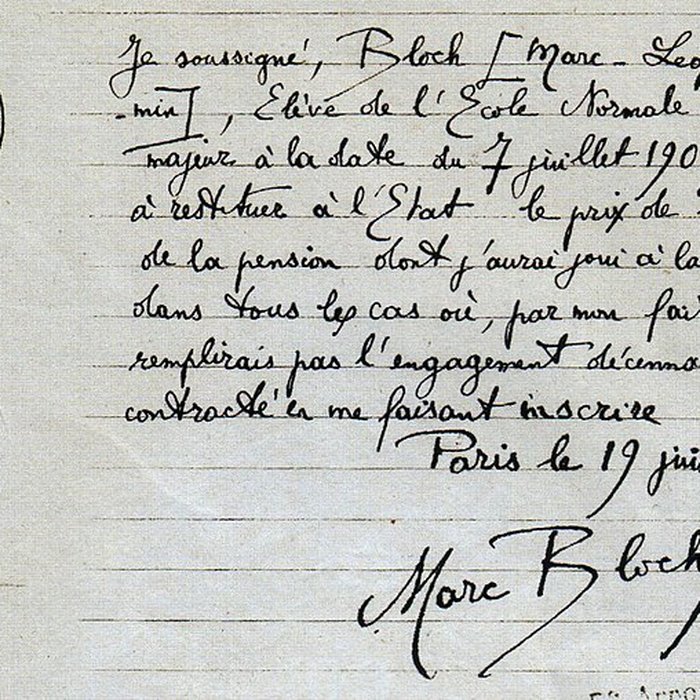 Je soussigné, Bloch [Marc - Leo
-min], Elève de l'Ecole Normale
majeur à la date du 7 juillet 190
à restituer à l'Etat le prix de
de la pension dont j'aurai joui à la
dans tous les cas où, par mon fai
remplirais pas l'engagement décenna
contracté en me faisant inscrire
Paris le 19 jui
Marc Bloch